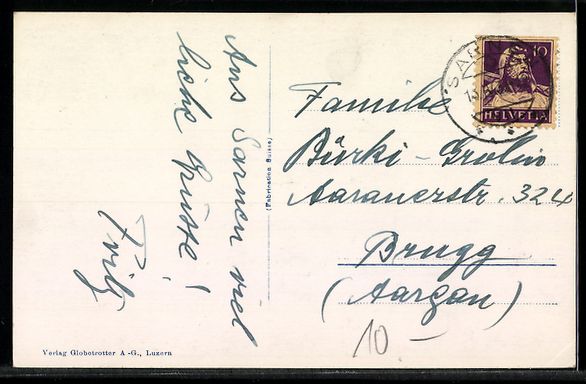 Aus Sarnen viel
liche Grüsse!
Fritz
(Fabrication Suisse)
Verlag Globetrotter A.-G., Luzern
10
HELVETIA
SARN
Familie
Bürki-Grolin
Aarauerstr. 324
Brugg
(Aargau)
10.-